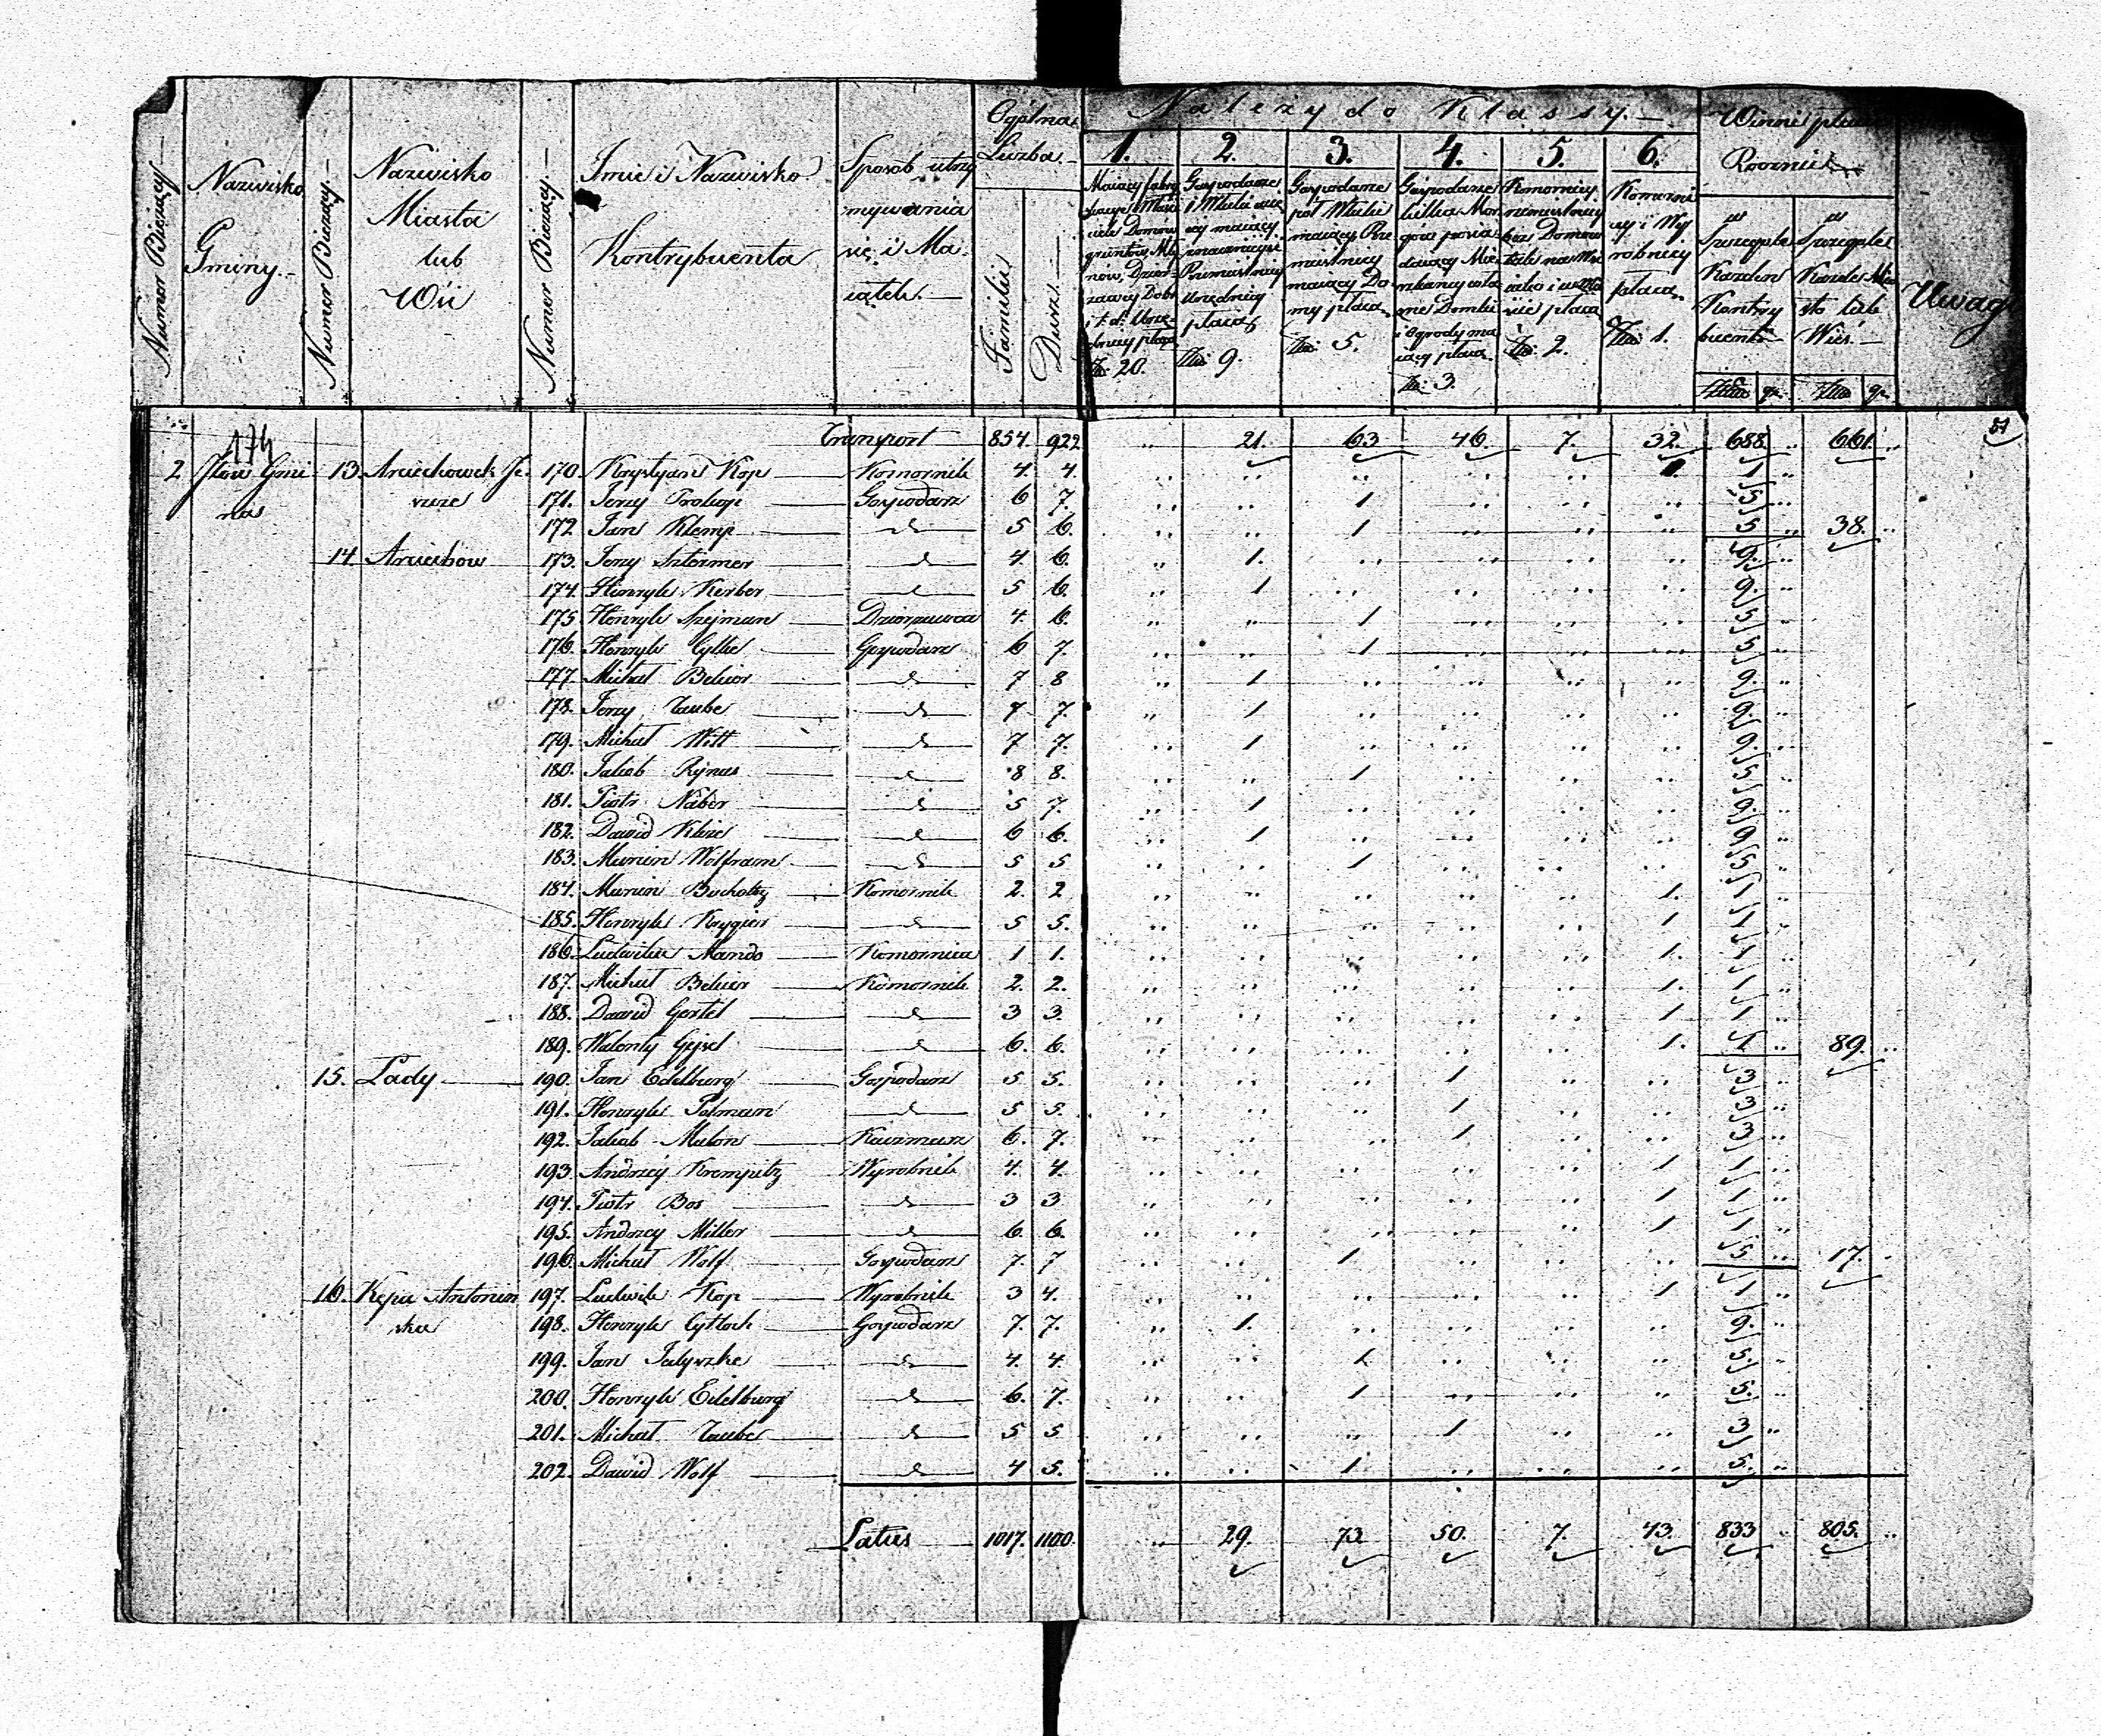 Numer Bieżący
Nazwisko Gminy.
Numer Bieżący
Nazwisko Miasta lub Wsi
Numer Bieżący
Imie i Nazwisko Kontrybuenta
Sposob utrzymywania się i Maiątek.
Ogólna Liczba
Familii
Dusz.
Należy do Klassy.
1.
2.
3.
4.
5.
6.
Domow
płacą
Zło: 20.
Gospodarze
płacą
Zło: 9.
Gospodarze
maiący Domy płacą
Zło: 5.
Gospodarze
i Ogrody maiący płacą
Zło: 3.
Komornicy
płacą
Zło: 2.
Komornicy i Wyrobnicy płacą
Zło: 1.
Winni płacić Rocznie
w Szczególe Każden Kontrybuent
w Szczególe Każde Miasto lub Wieś
Złto gr. Złto gr.
Uwagi
51
174
Transport 854. 922. .. 21. 63 46. 7. 32. 688. .. 661. ..
2. Iłow Gmina 13. Arciechowek 170. Krystyan Kop Komornik 4. 4. .. .. .. .. .. 1. 1 ..
171. Jerzy Prokop Gospodarz 6 7. .. .. 1 .. .. .. 5 ..
172 Jan Klemp d 5 6. .. .. 1 .. .. .. 5 .. 38. ..
14. Arciechow 173. Jerzy Sztormer d 4 6. .. 1. .. .. .. .. 9. ..
174. Henryk Kerber d 5 6. .. 1 .. .. .. .. 9. ..
175 Henryk Szejman Dzierzawca 4. 6. .. .. 1 .. .. .. 5 ..
176. Henryk Cytke Gospodarz 6 7. .. .. 1 .. .. .. 5 ..
177 Michał Belwor d 7 8 .. 1 .. .. .. .. 9. ..
178. Jerzy Taube d 7 7. .. 1 .. .. .. .. 9. ..
179. Michał Witt d 7 7. .. 1 .. .. .. .. 9. ..
180. Jakob Rynas d 8 8. .. .. 1 .. .. .. 5 ..
181. Piotr Naber d 5 7. .. 1 .. .. .. .. 9. ..
182. Dawid Klize d 6 6. .. 1 .. .. .. .. 9 ..
183. Marcin Wolfram d 5 5 .. .. 1 .. .. .. 5 ..
184. Marcin Bucholtz Komornik 2. 2 .. .. .. .. .. 1. 1 ..
185. Henryk Krygier d 5 5. .. .. .. .. .. 1 1 ..
186. Ludwika Mando Komornica 1 1. .. .. .. .. .. 1. 1 ..
187. Michał Belwer Komornik 2. 2. .. .. .. .. .. 1. 1 ..
188. Dawid Gertel d 3 3. .. .. .. .. .. 1 1 ..
189. Walenty Gejsel d 6. 6. .. .. .. .. .. 1. 1 .. 89. ..
15. Lady 190. Jan Edelburg Gospodarz 5 5. .. .. .. 1 .. .. 3 ..
191. Henryk Polman d 5 5. .. .. .. 1 .. .. 3 ..
192. Jakob Malon Karczmarz 6. 7. .. .. .. 1. .. .. 3 ..
193 Andrzey Krempitz Wyrobnik 4. 4. .. .. .. .. .. 1 1 ..
194. Piotr Bos d 3 3. .. .. .. .. .. 1 1 ..
195. Andrzey Miller d 6. 6. .. .. .. .. .. 1 1 ..
196. Michał Wolf Gospodarz 7. 7 .. .. 1 .. .. .. 5 .. 17. ..
16. Kępa Antoninska 197. Ludwik Kop Wyrobnik 3 4. .. .. .. .. .. 1 1 ..
198. Henryk Cytloch Gospodarz 7. 7. .. 1. .. .. .. .. 9. ..
199. Jan Jatyszke d 4. 4. .. .. 1 .. .. .. 5. ..
200. Henryk Edelburg d 6. 7. .. .. 1 .. .. .. 5. ..
201. Michał Taube d 5 5 .. .. .. 1 .. .. 3 ..
202. Dawid Wolf d 4 5. .. .. 1. .. .. .. 5. ..
Latus 1017. 1100. .. 29. 73 50. 7. 43. 833 .. 805. ..